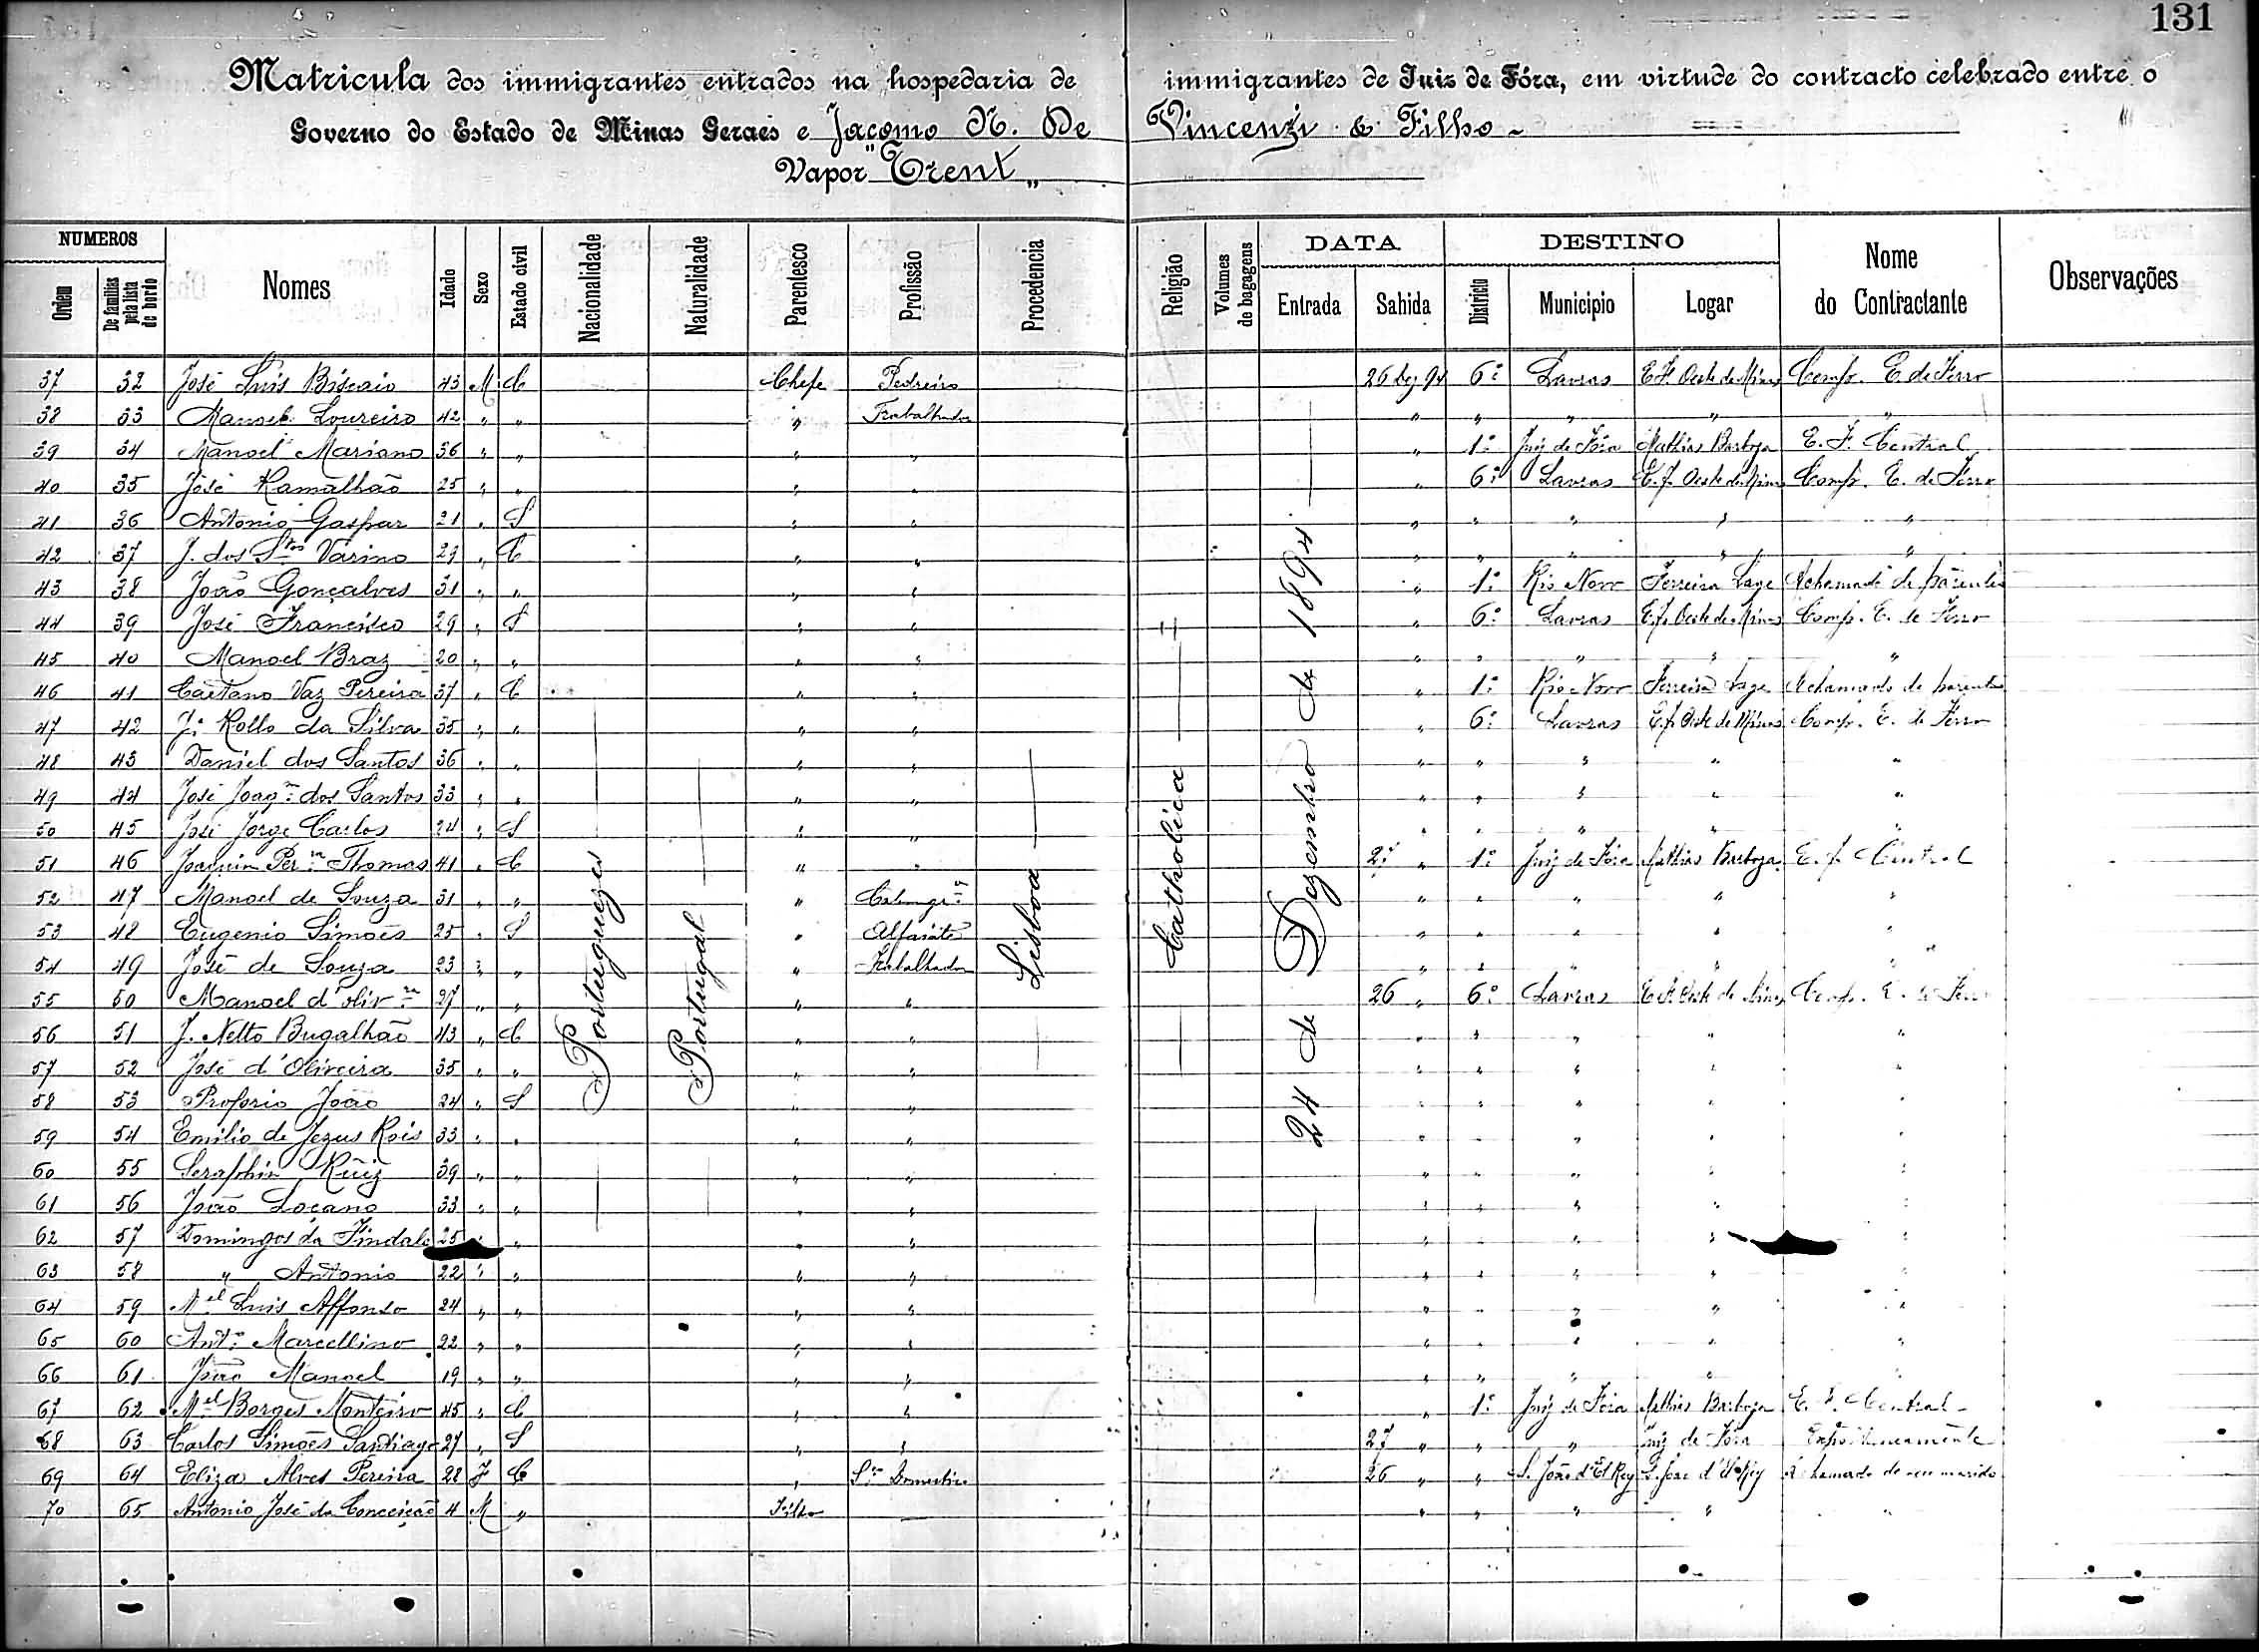 131
Matricula dos immigrantes entrados na hospedaria de immigrantes de Juiz de Fóra, em virtude do contracto celebrado entre o
Governo do Estado de Minas Geraes e Jacomo N. De Vincenzi & Filho -
Vapor "Trent"
NUMEROS DATA DESTINO
Ordem De familias pela lista de bordo Nomes Idade Sexo Estado civil Nacionalidade Naturalidade Parentesco Profissão Procedencia Religião Volumes de bagagens Entrada Sahida Districto Municipio Logar Nome do Contractante Observações
Portuguezes
Portugal
Lisboa
Catholica
24 de Dezembro de 1894
37 32 José Luis Biscaio 43 M C Chefe Pedreiro 26 Dez 94 6º Lavras E.F. Oeste de Minas Comp. E. de Ferro
38 33 Manoel Loureiro 42 " " " Trabalhador " " " " "
39 34 Manoel Mariano 36 " " " " " 1º Juiz de Fóra Mathias Barboza E. F. Central
40 35 José Ramalhão 25 " " " " " 6º Lavras E.F. Oeste de Minas Comp. E. de Ferro
41 36 Antonio Gaspar 21 " S " " " " " " "
42 37 J. dos Stos Varino 29 " C " " " " " " "
43 38 João Gonçalves 31 " " " " " 1º Rio Novo Ferreira Lage A chamado de parentes
44 39 José Francisco 29 " S " " " 6º Lavras E.F. Oeste de Minas Comp. E. de Ferro
45 40 Manoel Braz 20 " " " " " " " " "
46 41 Caetano Vaz Pereira 37 " C " " " 1º Rio Novo Ferreira Lage A chamado de parentes
47 42 Jº Rollo da Silva 35 " " " " " 6º Lavras E.F. Oeste de Minas Comp. E. de Ferro
48 43 Daniel dos Santos 36 " " " " " " " " "
49 44 José Joaqm dos Santos 33 " " " " " " " " "
50 45 José Jorge Carlos 24 " S " " " " " " "
51 46 Joaquim Perra Thomas 41 " C " " 27 " 1º Juiz de Fóra Mathias Barboza E. F. Central
52 47 Manoel de Souza 31 " " " " " " " "
53 48 Eugenio Simões 25 " S " Alfaiate " " " " "
54 49 José de Souza 23 " " " Trabalhador " " " " "
55 50 Manoel d'Olivra 27 " " " " 26 " 6º Lavras E.F. Oeste de Minas Comp. E. de Ferro
56 51 J. Netto Bugalhão 43 " C " " " " " " "
57 52 José d'Oliveira 35 " " " " " " " " "
58 53 João 24 " S " " " " " " "
59 54 Emilio de Jezus Rois 33 " " " " " " " " "
60 55 Seraphin Ruiz 39 " " " " " " " " "
61 56 João Loçano 33 " " " " " " " " "
62 57 Domingos da 25 " " " " " " " " "
63 58 " Antonio 22 " " " " " " " " "
64 59 Mel Luis Affonso 24 " " " " " " " " "
65 60 Antº Marcellino 22 " " " " " " " " "
66 61 João Manoel 19 " " " " " " " " "
67 62 Mel Borges Monteiro 45 " C " " " 1º Juiz de Fóra Mathias Barboza E. F. Central -
68 63 Carlos Simões Santiago 27 " S " " 27 " " " Juiz de Fóra
69 64 Eliza Alves Pereira 28 F C " Domestico 26 " " S. João d'El Rey S. João d'El Rey A chamado de seu marido
70 65 Antonio José da Conceição 4 M " Filho — " " " " "